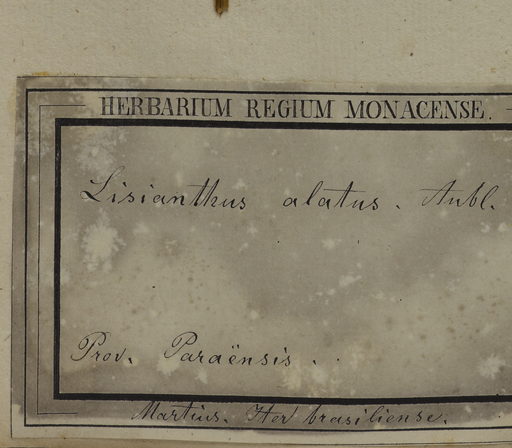 HERBARIUM REGIUM MONACENSE.
Lisianthus alatus. Aubl.
Prov. Paraënsis.
Martius. Iter brasiliense.